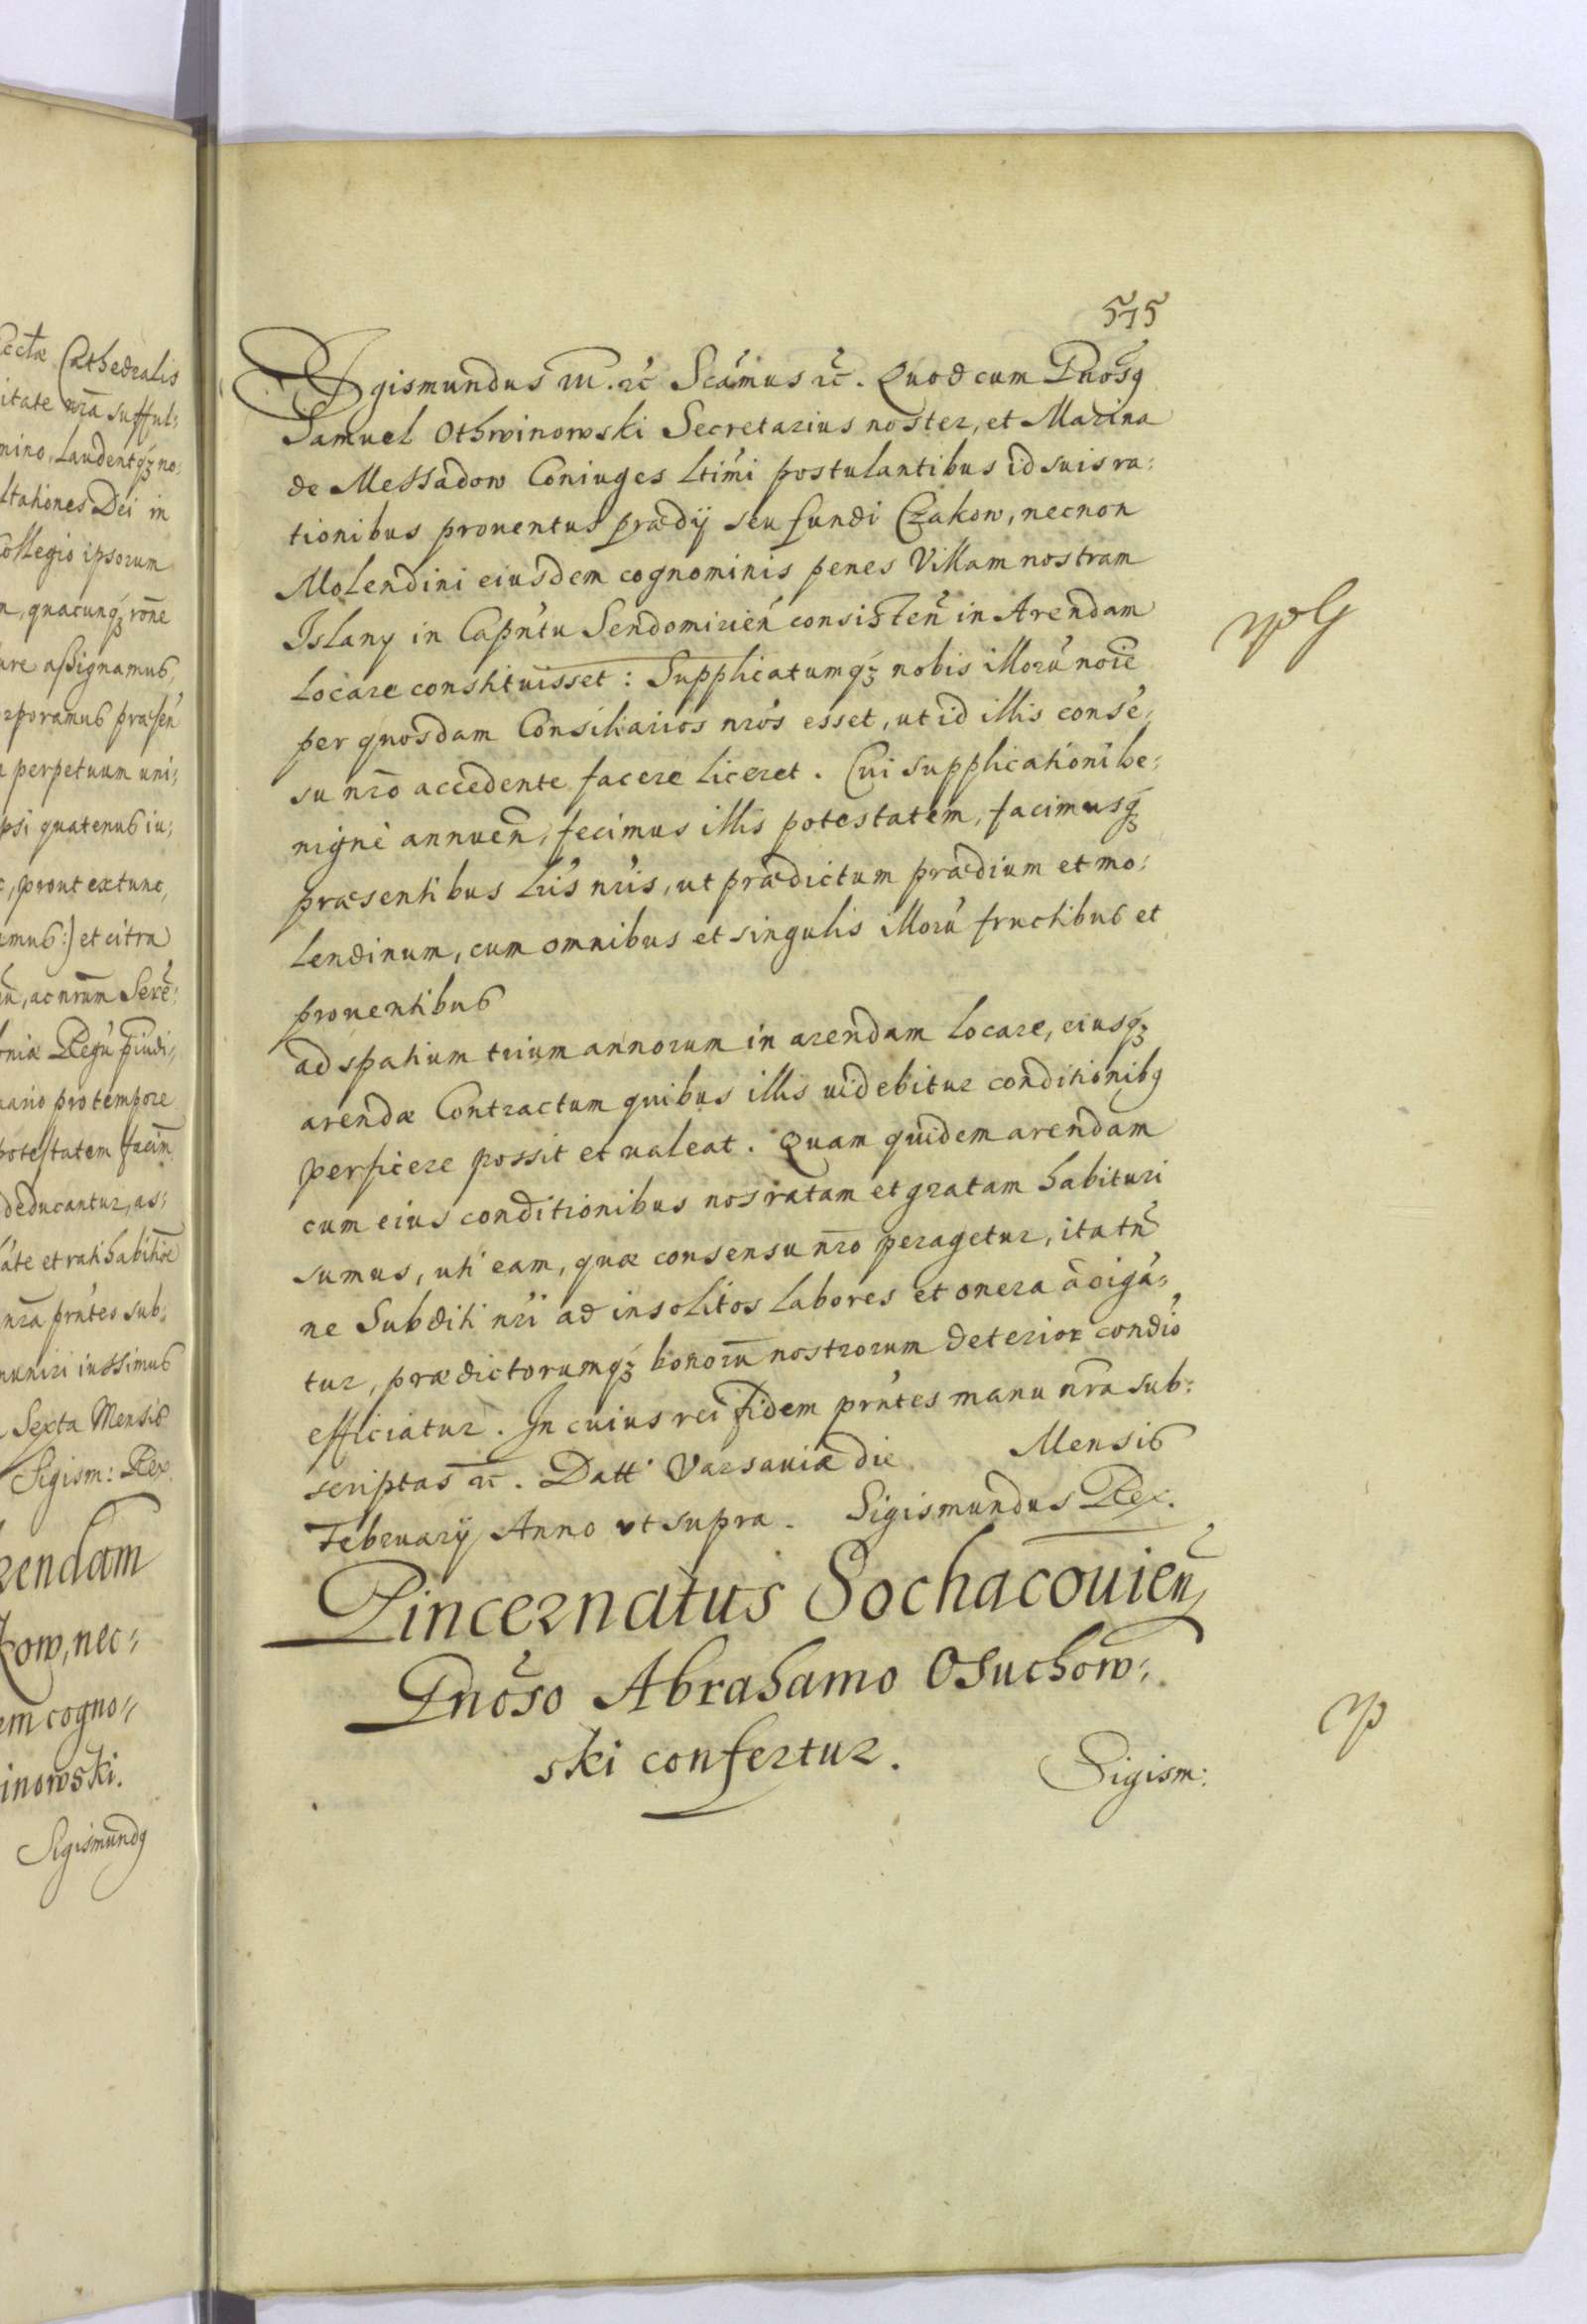 cctæ Cathedralis
itate nrã sufful:
mino, laudentqꝫ no:
ltationes Dei in
Collegio ipsorum
n, quacunqꝫ rõne
ure assignamus,
orporamus præsen̄
perpetuum uni:
psi quatenus iu:
prout ex tunc,
amus:) et citra
ac nrũm Serẽ:
niæ Regũ
nario pro tempore
potestatem facim̃
deducantur, as:
ate et ratihabitiõe
nrã prñtes sub:
muniri iussimus
Sexta Mensis
Sigism: Rex
rendam
kow, nec:
em cogno:
inowski.
Sigismundꝯ
515
Sigismundus III. ꝛc̃ Scãmus ꝛc̃. Quod cum Gnõsꝯ
Samuel Othwinowski Secretarius noster, et Marina
de Messadow Coniuges ltimi postulantibus id suis ra:
tionibus prouentus prædij seu fundi Czakow, necnon
Molendini eiusdem cognominis penes Villam nostram
Islany in Capñtu Sendomirien̄ consisten̄ in Arendam
locare constituisset: Supplicatumqꝫ nobis illorũ noiẽ
per quosdam Consiliarios nrõs esset, ut id illis consẽ:
su nrõ accedente facere liceret. Cui supplicationi be:
nignè annuen̄, fecimus illis potestatem, facimusqꝫ
præsentibus lrĩs nrĩs, ut prædictum prædium et mo:
lendinum, cum omnibus et singulis illorũ fructibus et
prouentibus
ad spatium trium annorum in arendam locare, eiusqꝫ
arendæ Contractum quibus illis uidebitur conditionibꝯ
perficere possit et ualeat. Quam quidem arendam
cum eius conditionibus nos ratam et gratam habituri
sumus, uti eam, quæ consensu nrõ peragetur, ita tñ
ne Subditi nrĩ ad insolitos labores et onera adigã:
tur, prædictorumqꝫ bonorũ nostrorum deterior condiõ
efficiatur. In cuius rei fidem prñtes manu nrã sub:
scriptas ꝛc̃. Datt Varsauiæ die Mensis
February Anno ut supra. Sigismundus Rex.
Pincernatus Sochacouien̄
Gnõso Abrahamo Osuchow:
ski confertur.
Sigism: